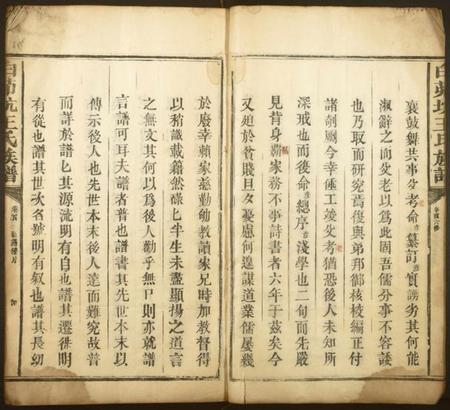 白茆坑王氏族譜
襄鼓舞共事父考命纂訂實謭劣其何能
淑辭之而父老以為此固吾儒分事不容諉
也乃取而研究焉復與弟邦御核校編正付
諸剞劂今幸倕工竣父考猶恐後人未知所
深戒也而復命總序淺學也二旬而先嚴
見背身羈家務不事詩書者六年于茲矣今
又廹於貧賤日夕憂慮何遑謀道業儒屢幾
於廢幸賴家慈勤勉教讀家兄時加教督得
以稍識載籍然碌碌半生未盡顯揚之道言
之無文其何以為後人勸乎無已則亦就譜
言譜可耳夫譜者普也譜書其先世本末以
傳示後人也先世本末後人遠而難究故普
而詳於譜上其源流明有自也譜其遷徙明
有從也譜其世次名號明有叙也譜其長幼
白茆坑王氏族譜